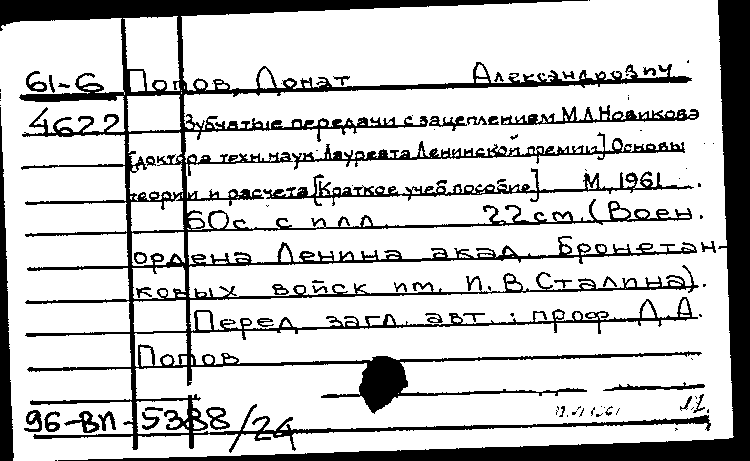 61-6 Попов, Лонат Александрович
4622 Зубчатые передачи с зацеплением М.Л.Новикова
[доктора техн.наук Лауреата Ленинской премии] Основы
теории и расчета [Краткое учеб.пособие] М, 1961.
60с. с илл. 22см. (Воен.
ордена Ленина акад. Бронетан-
ковых войск им. И.В.Сталина).
Перед загл. авт.: проф Л.А.
Попов
96-ВП-5388/24